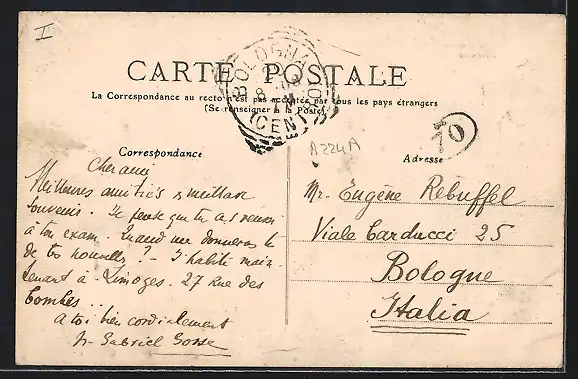 I
CARTE POSTALE
La Correspondance au recto n'est pas acceptée par tous les pays étrangers
(Se renseigner à la Poste)
BOLOGNA
8
(CEN
A224A
70
Correspondance
Adresse
Cher ami
Meilleures amitiés & meilleur
souvenir. Je pense que tu as réussi
à ton exam. Quand me donneras tu
de tes nouvelles ? - J'habite main
tenant à Limoges. 27 rue des
Combes ..
A toi bien cordialement
Gabriel Gosse
Mr. Eugène Rebuffel
Viale Carducci 25
Bologne
Italia